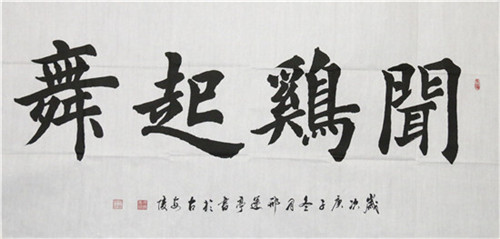 聞鷄起舞
歲次庚子冬月邢蓮亭書於古安陵